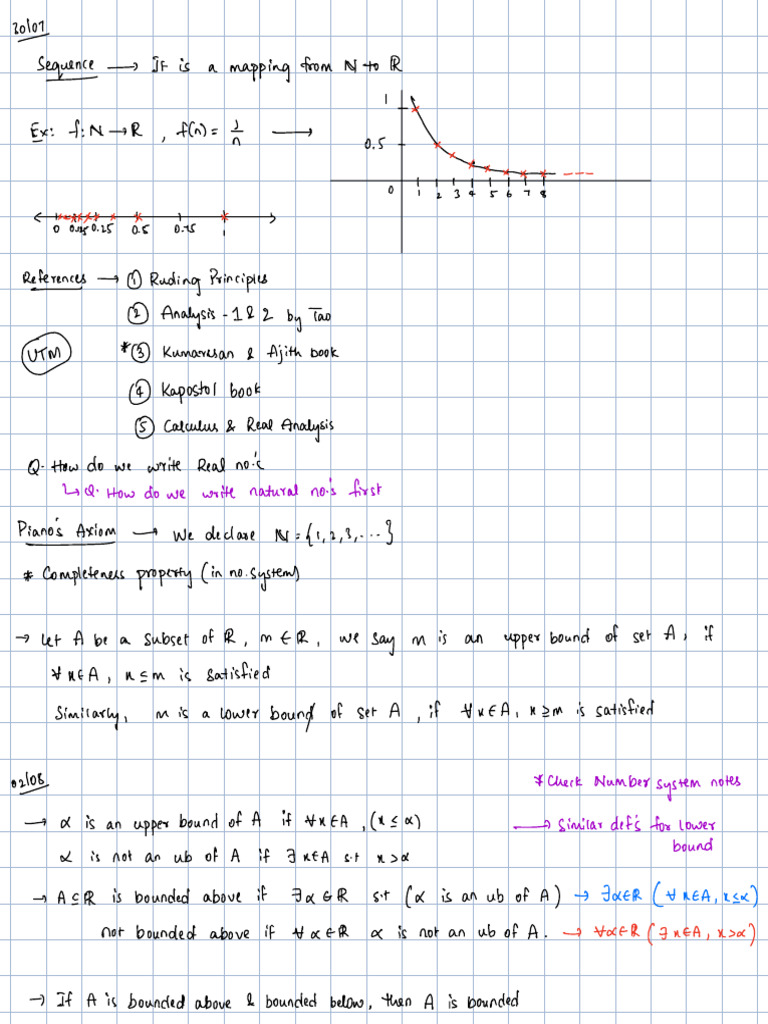 30/07
Sequence → It is a mapping from ℕ to ℝ
Ex: f: ℕ → ℝ , f(n) = 1/n →
1
0.5
0 1 2 3 4 5 6 7 8
0 0.125 0.25 0.5 0.75 1
References → ① Ruding Principles
② Analysis - 1 & 2 by Tao
UTM
*③ Kumaresan & Ajith book
④ Kapostol book
⑤ Calculus & Real Analysis
Q. How do we write Real no.'s
↳ Q. How do we write natural no.'s first
Piano's Axiom → We declare ℕ = {1, 2, 3, ...}
* Completeness property (in no. system)
→ Let A be a subset of ℝ, m ∈ ℝ, we say m is an upper bound of set A, if
∀ x ∈ A, x ≤ m is satisfied
Similarly, m is a lower bound of set A, if ∀ x ∈ A, x ≥ m is satisfied
02/08
* Check Number system notes
→ α is an upper bound of A if ∀ x ∈ A, (x ≤ α)
→ Similar def's for lower
bound
α is not an ub of A if ∃ x ∈ A s.t x > α
→ A ⊆ ℝ is bounded above if ∃ α ∈ ℝ s.t (α is an ub of A) → ∃ α ∈ ℝ (∀ x ∈ A, x ≤ α)
not bounded above if ∀ α ∈ ℝ α is not an ub of A. → ∀ α ∈ ℝ (∃ x ∈ A, x > α)
→ If A is bounded above & bounded below, then A is bounded